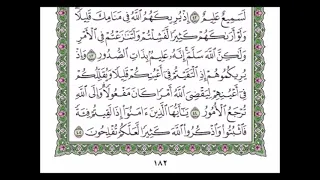 لَسَمِيعٌ عَلِيمٌ ٤٢ إِذْ يُرِيكَهُمُ اللَّهُ فِي مَنَامِكَ قَلِيلًا
وَلَوْ أَرَىٰكَهُمْ كَثِيرًا لَفَشِلْتُمْ وَلَتَنَٰزَعْتُمْ فِي الْأَمْرِ
وَلَٰكِنَّ اللَّهَ سَلَّمَ إِنَّهُ عَلِيمٌ بِذَاتِ الصُّدُورِ ٤٣ وَإِذْ
يُرِيكُمُوهُمْ إِذِ الْتَقَيْتُمْ فِي أَعْيُنِكُمْ قَلِيلًا وَيُقَلِّلُكُمْ
فِي أَعْيُنِهِمْ لِيَقْضِيَ اللَّهُ أَمْرًا كَانَ مَفْعُولًا وَإِلَى اللَّهِ
تُرْجَعُ الْأُمُورُ ٤٤ يَٰأَيُّهَا الَّذِينَ ءَامَنُوا إِذَا لَقِيتُمْ فِئَةً
فَاثْبُتُوا وَاذْكُرُوا اللَّهَ كَثِيرًا لَعَلَّكُمْ تُفْلِحُونَ ٤٥
١٨٢